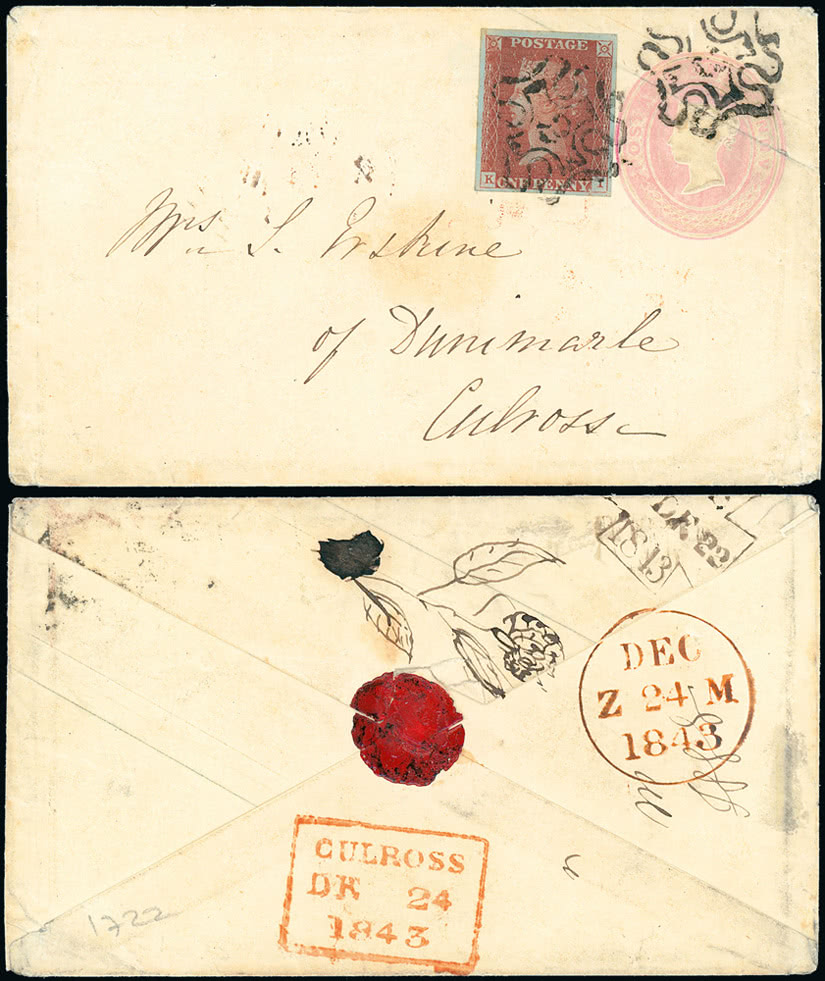 POSTAGE
K
ONE PENNY
I
POST
Mrs S. Erskine
of Dunimarle
Culross
DE 22
1843
DEC
Z 24 M
1843
CULROSS
DE 24
1843
1722